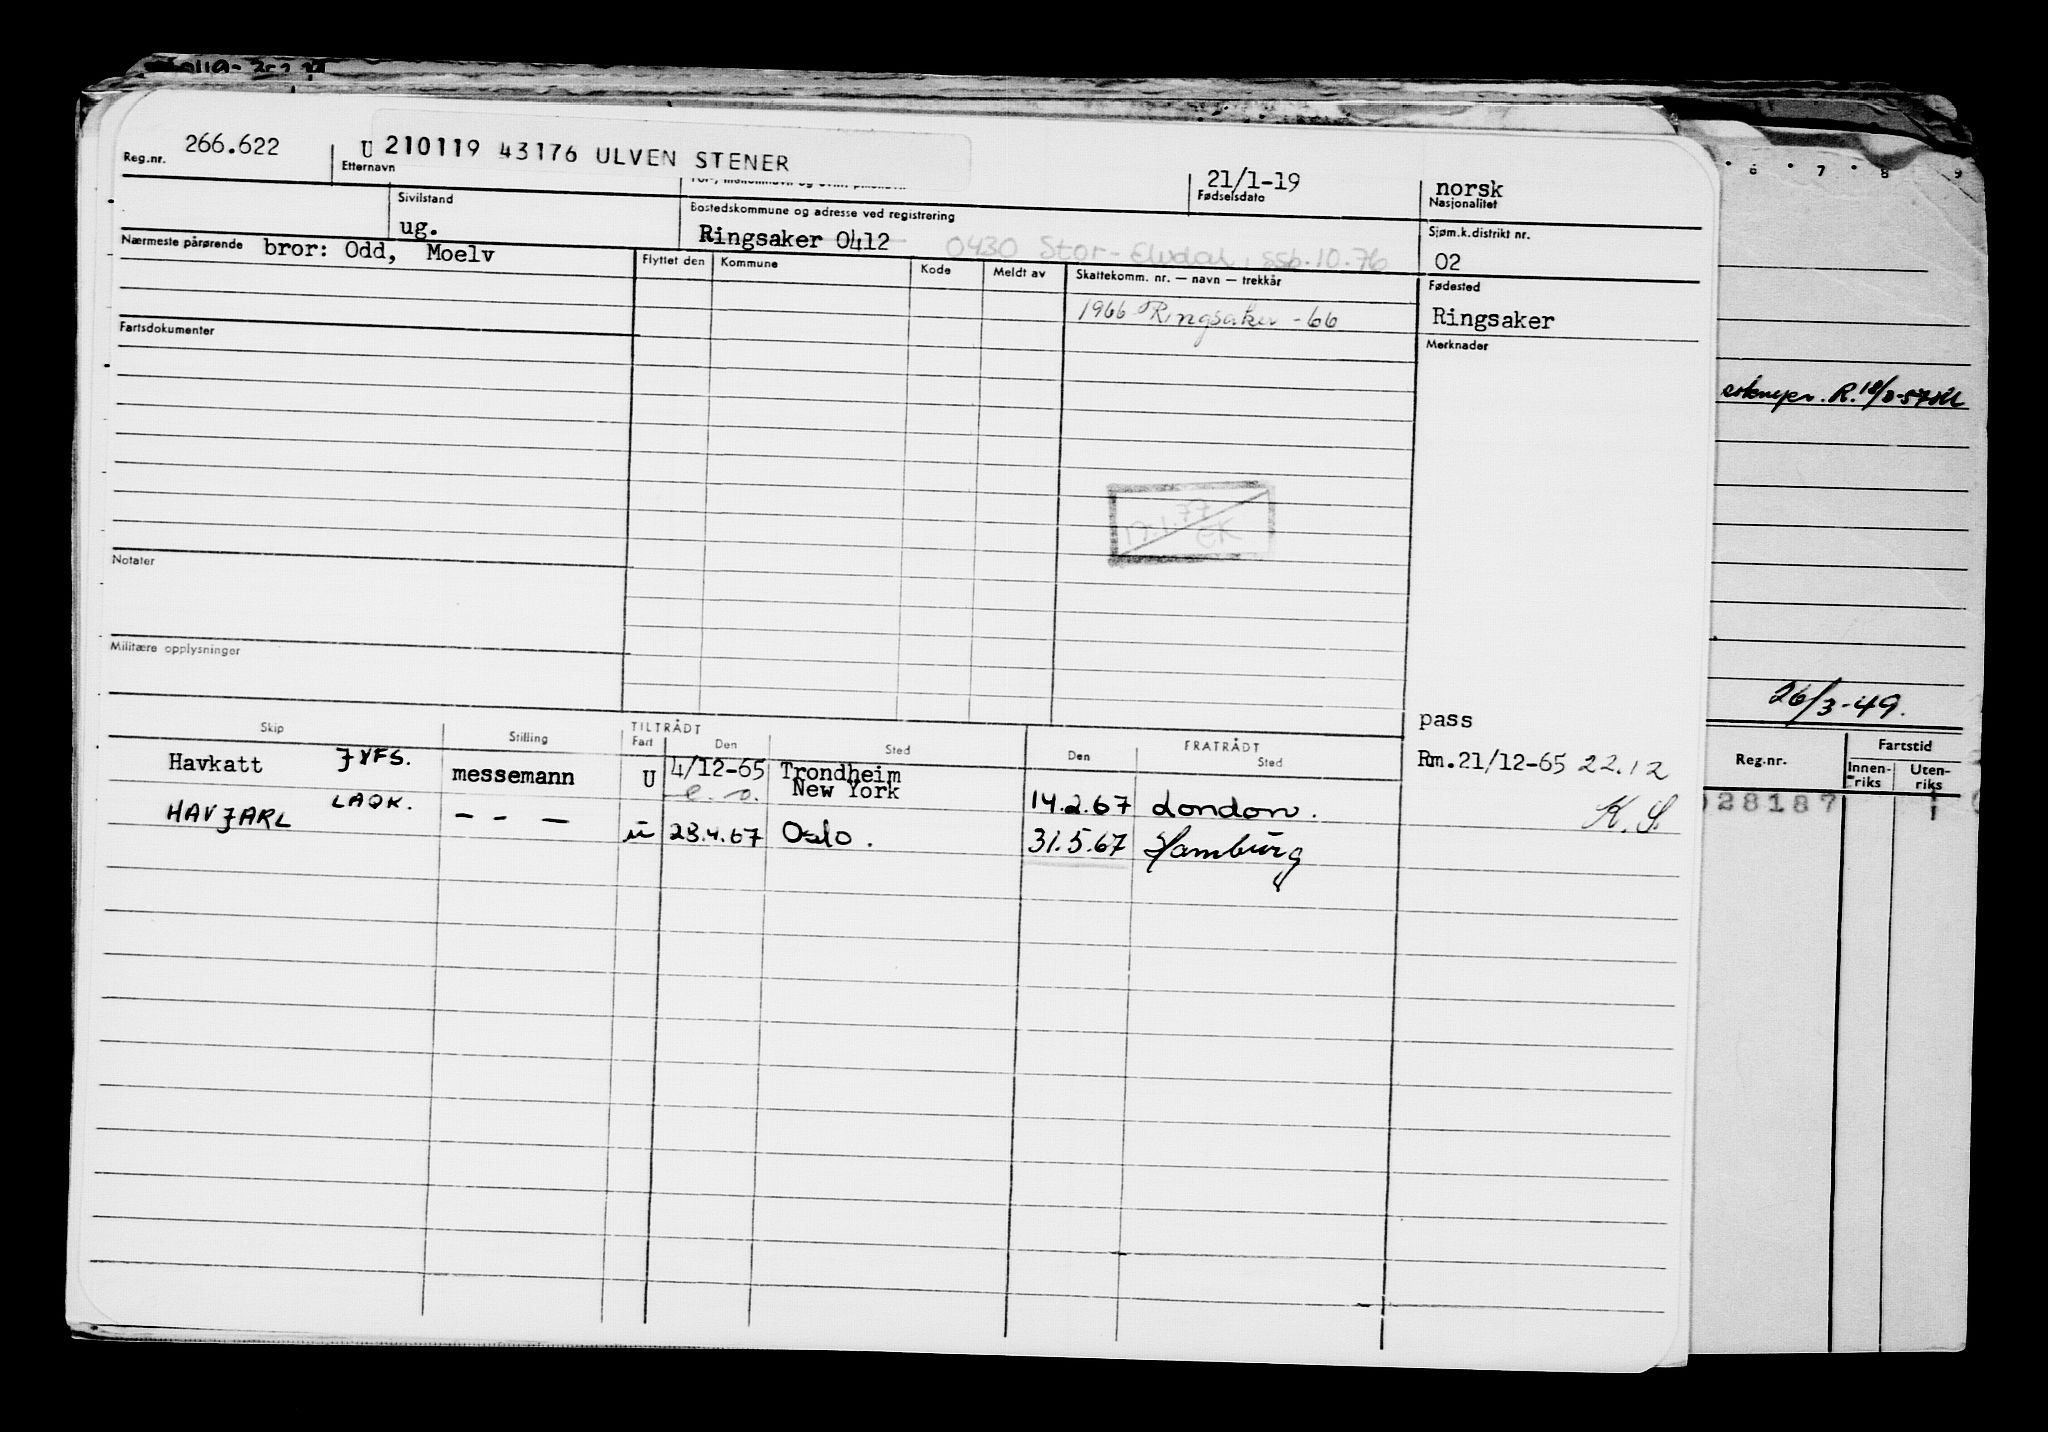 Reg.nr. 266.622
U 210119 43176 ULVEN STENER
Etternavn
21/1-19
Fødselsdato
norsk
Nasjonalitet
Sivilstand
ug.
Bostedskommune og adresse ved registrering
Ringsaker 0412 0430 Stor-Elvdal, ssb.10.76
Sjøm.k.distrikt nr.
02
Nærmeste pårørende bror: Odd, Moelv
Flyttet den Kommune Kode Meldt av Skattekomm. nr. — navn — trekkår
1966 Ringsaker -66
Fødested
Ringsaker
Fartsdokumenter
Merknader
77
EK
Notater
Militære opplysninger
pass
Skip Stilling TILTRÅDT Fart Den Sted Den FRATRÅDT Sted
Havkatt JXFS. messemann U 4/12-65 Trondheim Rm.21/12-65 22.12
New York 14.2.67 London. K.S.
HAVJARL LAQK. - - - u 23.4.67 Oslo. 31.5.67 Hamburg
6 7 8 9
26/3-49.
Reg.nr. Fartstid
Innen-riks Uten-riks
28187